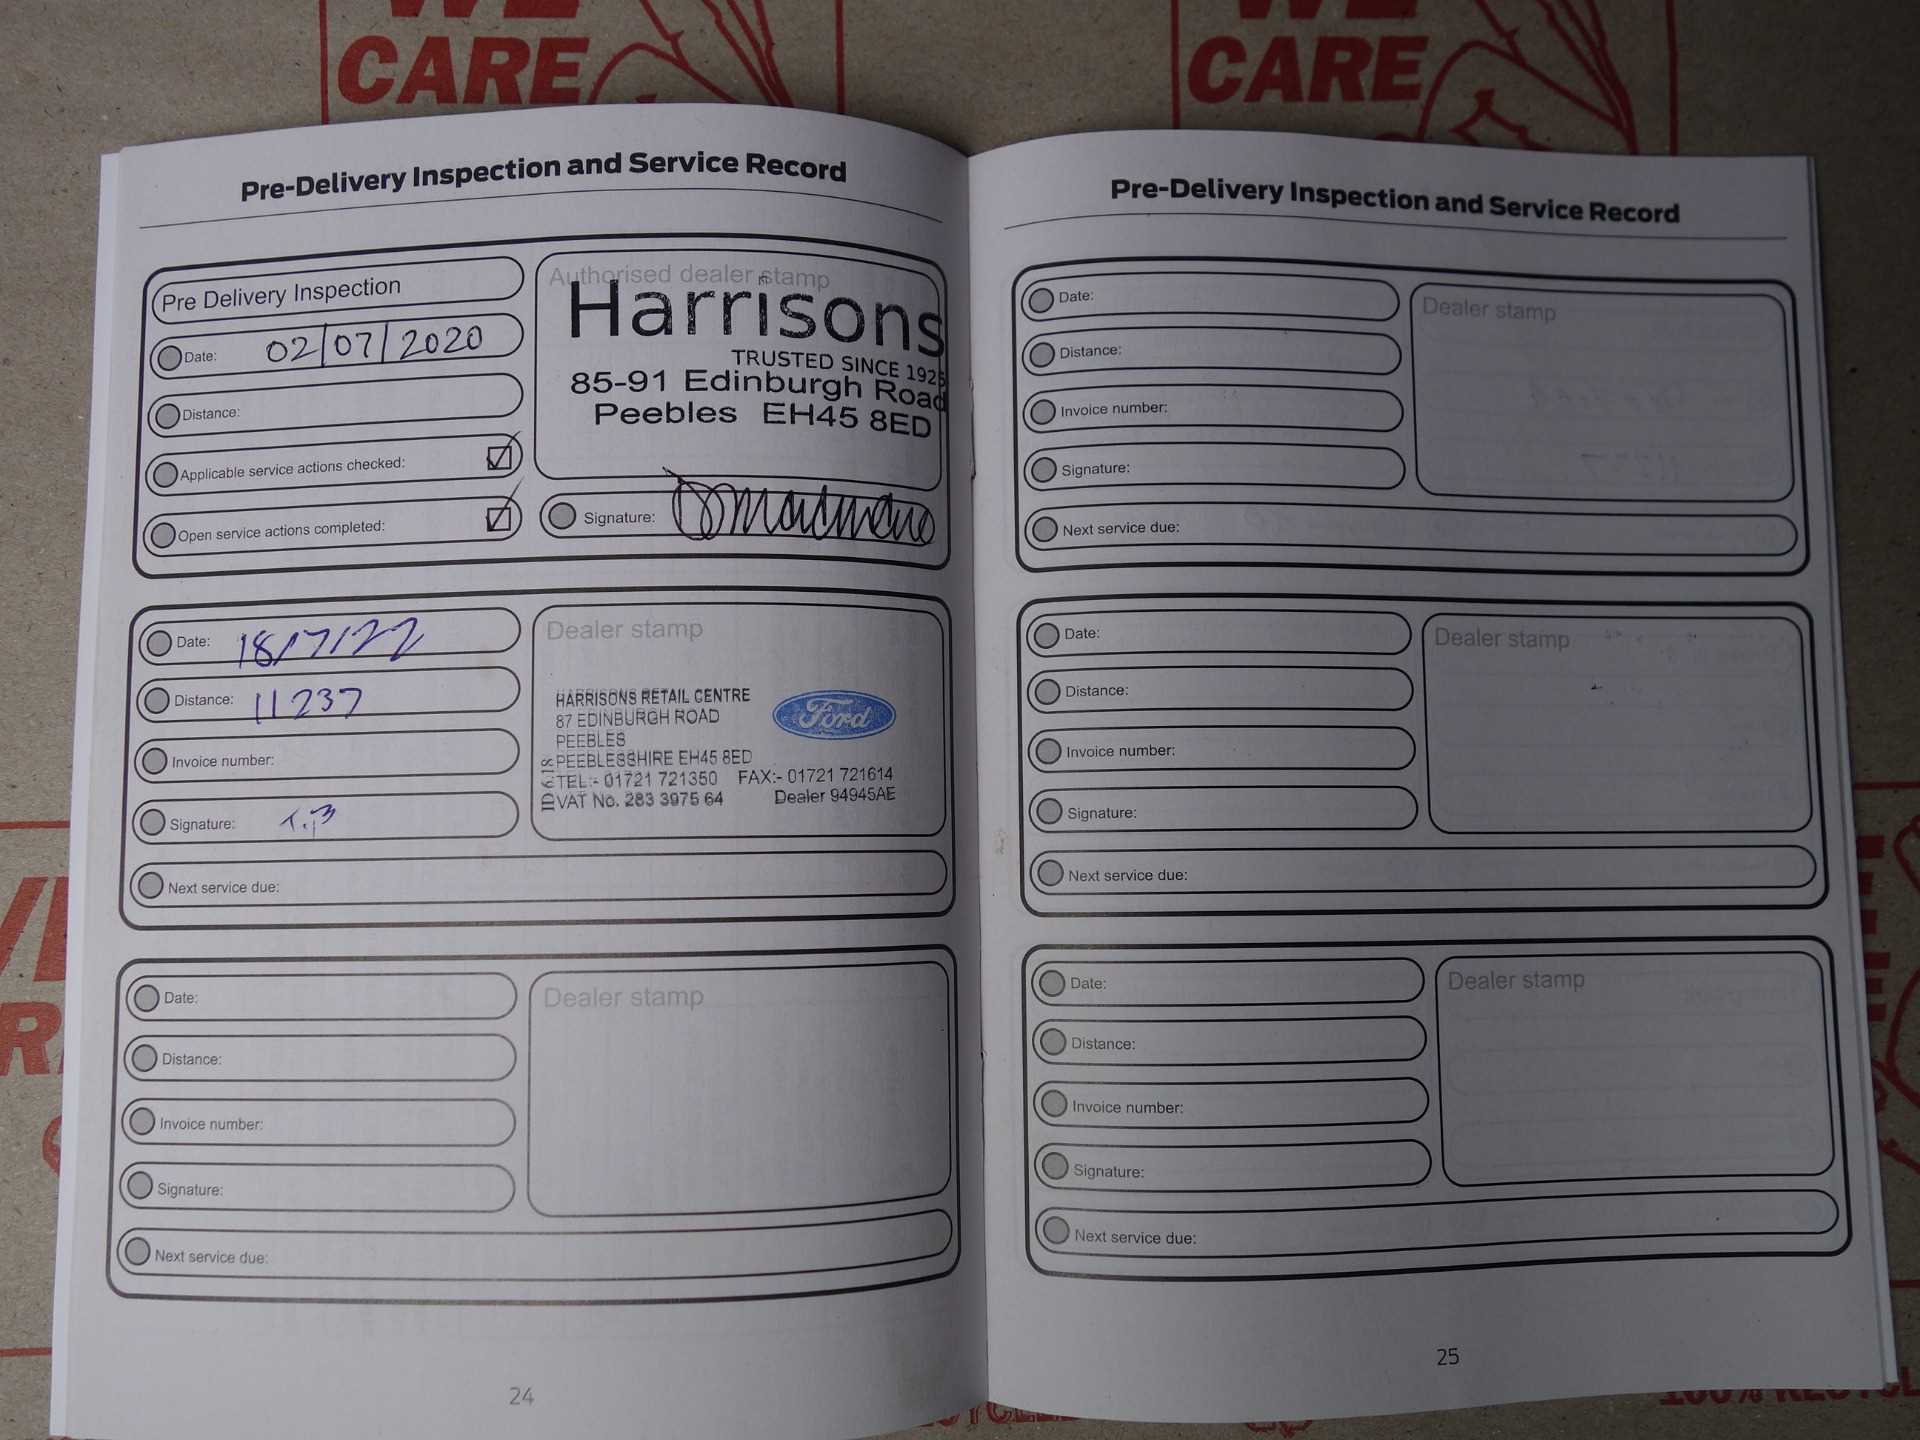 WE
CARE
WE
CARE
Pre-Delivery Inspection and Service Record
Pre Delivery Inspection
Date: 02/07/2020
Distance:
Applicable service actions checked:
Open service actions completed:
Authorised dealer stamp
Harrisons
TRUSTED SINCE 1925
85-91 Edinburgh Road
Peebles EH45 8ED
Signature:
Date: 18/7/22
Distance: 11237
Invoice number:
Signature:
Next service due:
Dealer stamp
HARRISONS RETAIL CENTRE
87 EDINBURGH ROAD
PEEBLES
PEEBLESSHIRE EH45 8ED
TEL:- 01721 721350 FAX:- 01721 721614
VAT No. 283 3975 64 Dealer 94945AE
Ford
Date:
Distance:
Invoice number:
Signature:
Next service due:
Dealer stamp
24
Pre-Delivery Inspection and Service Record
Date:
Distance:
Invoice number:
Signature:
Next service due:
Dealer stamp
Date:
Distance:
Invoice number:
Signature:
Next service due:
Dealer stamp
Date:
Distance:
Invoice number:
Signature:
Next service due:
Dealer stamp
25